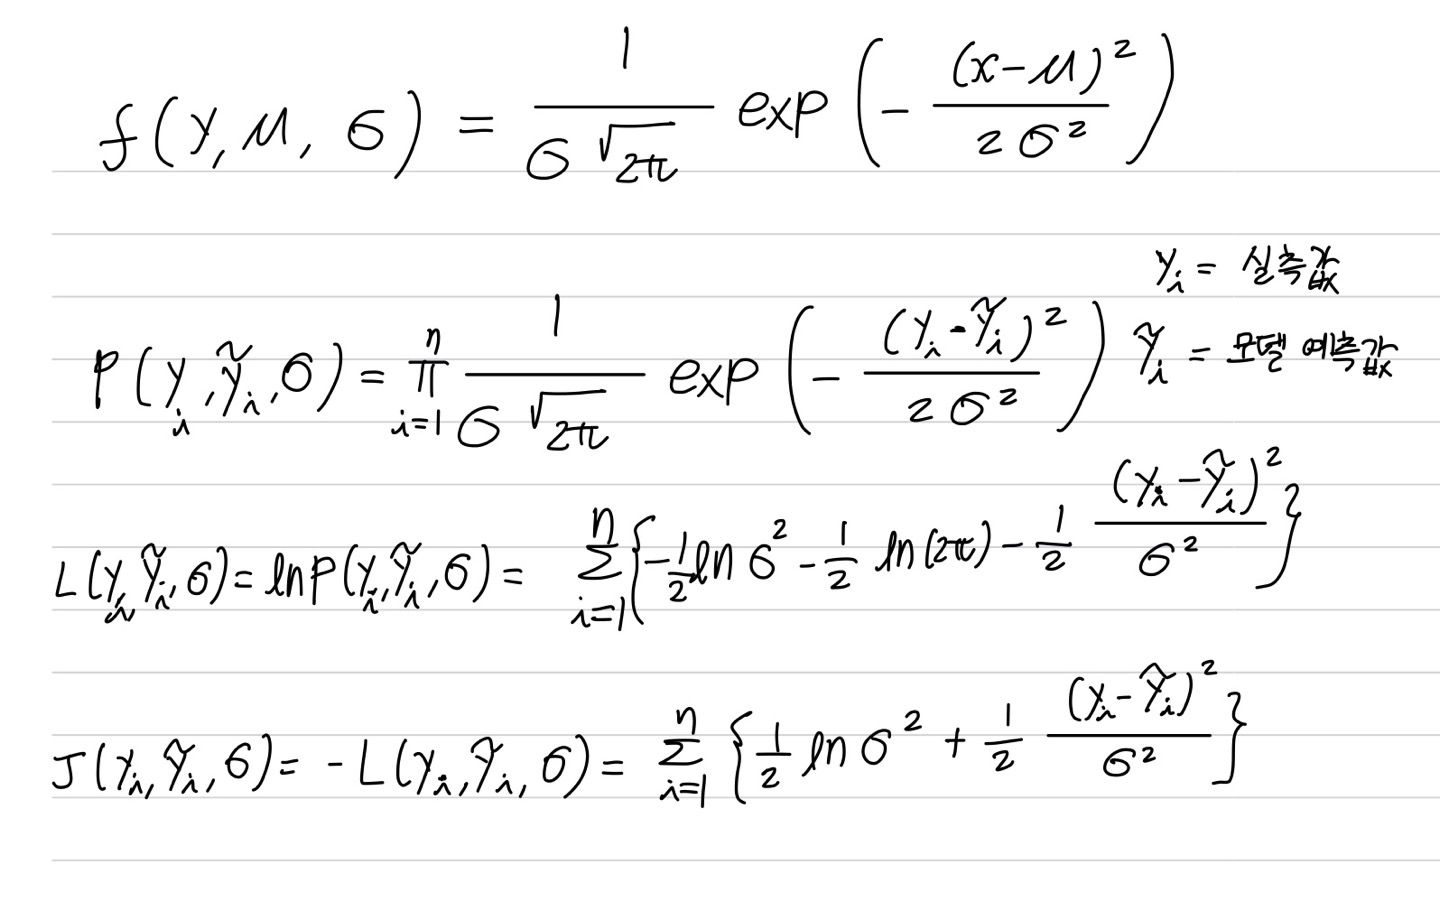 f(y, μ, σ) = 1 / (σ √2π) exp(- (x-μ)² / 2σ²)
yᵢ = 실측값
P(yᵢ, ỹᵢ, σ) = ∏ᵢ₌₁ⁿ 1 / (σ √2π) exp(- (yᵢ - ỹᵢ)² / 2σ²)
ỹᵢ = 모델 예측값
L(yᵢ, ỹᵢ, σ) = ln P(yᵢ, ỹᵢ, σ) = ∑ᵢ₌₁ⁿ {-1/2 ln σ² - 1/2 ln(2π) - 1/2 (yᵢ - ỹᵢ)² / σ²}
J(yᵢ, ỹᵢ, σ) = -L(yᵢ, ỹᵢ, σ) = ∑ᵢ₌₁ⁿ {1/2 ln σ² + 1/2 (yᵢ - ỹᵢ)² / σ²}